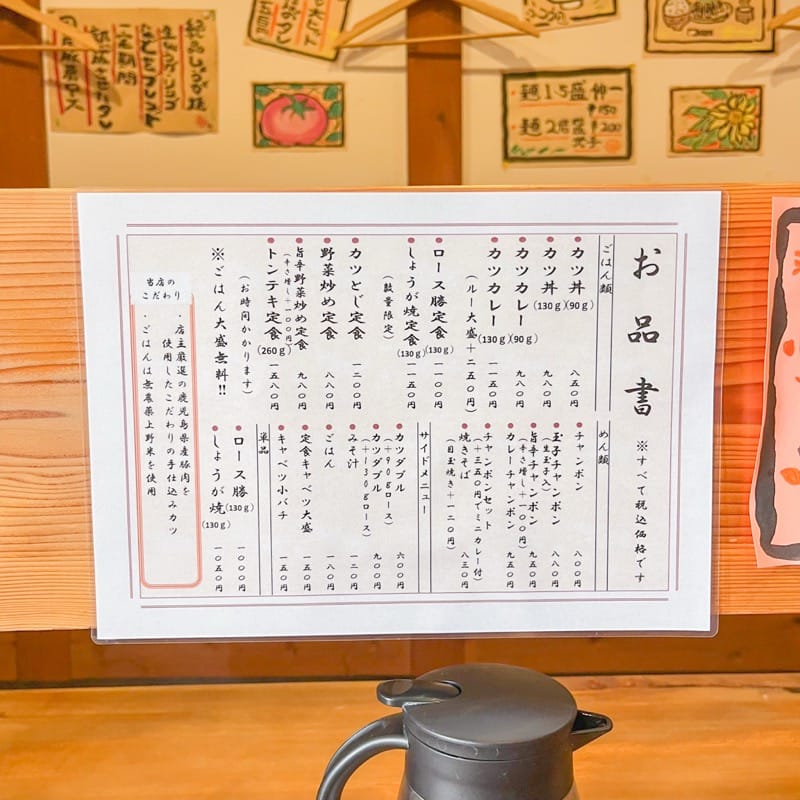 お品書
※すべて税込価格です
ごはん類
カツ丼(90g) 八五〇円
カツ丼(130g) 九八〇円
カツカレー(90g) 九八〇円
カツカレー(130g) 一一五〇円
(ルー大盛+二五〇円)
ロース勝定食(130g) 一一〇〇円
しょうが焼定食(130g) 一一五〇円
(数量限定)
カツとじ定食 一二〇〇円
野菜炒め定食 八八〇円
旨辛野菜炒め定食 九八〇円
(辛さ増し+一〇〇円)
トンテキ定食(260g) 一五八〇円
(お時間かかります)
※ごはん大盛無料!!
めん類
チャンポン 八〇〇円
玉子チャンポン 八八〇円
(生玉子入)
旨辛チャンポン 九五〇円
(辛さ増し+一〇〇円)
カレーチャンポン 九五〇円
チャンポンセット
(+三五〇円でミニカレー付)
焼きそば 八三〇円
(目玉焼き+一二〇円)
サイドメニュー
カツダブル 六〇〇円
(+90gロース)
カツダブル 九〇〇円
(+130gロース)
みそ汁 一二〇円
ごはん 一八〇円
定食キャベツ大盛 一五〇円
キャベツ小バチ 一五〇円
単品
ロース勝(130g) 一〇〇〇円
しょうが焼(130g) 一〇五〇円
当店の
こだわり
・店主厳選の鹿児島県産豚肉を
使用したこだわりの手仕込みカツ
・ごはんは無農薬上野米を使用
・麺1.5盛
¥150
・麺2倍盛 ¥200